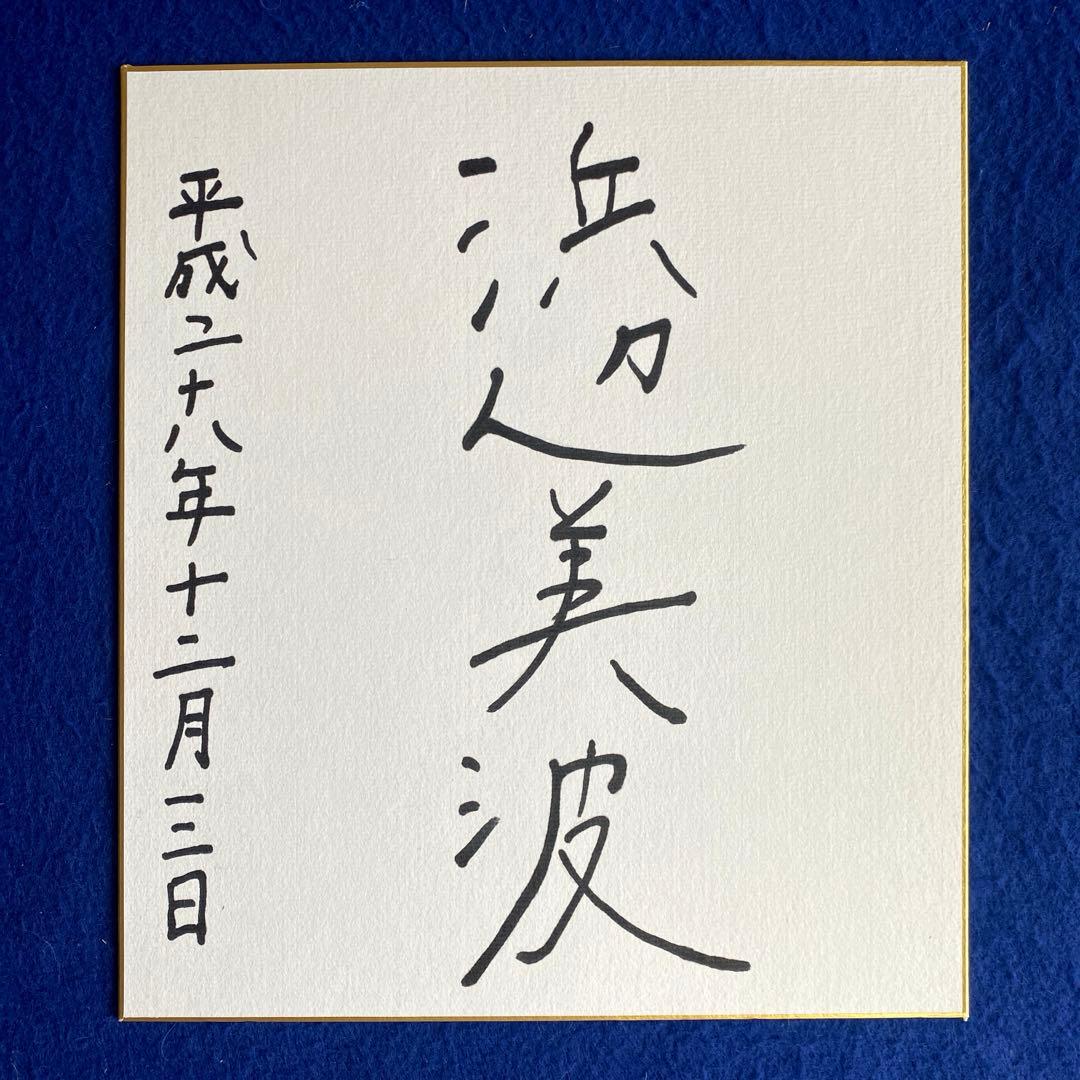 浜辺美波
平成二十八年十二月三日